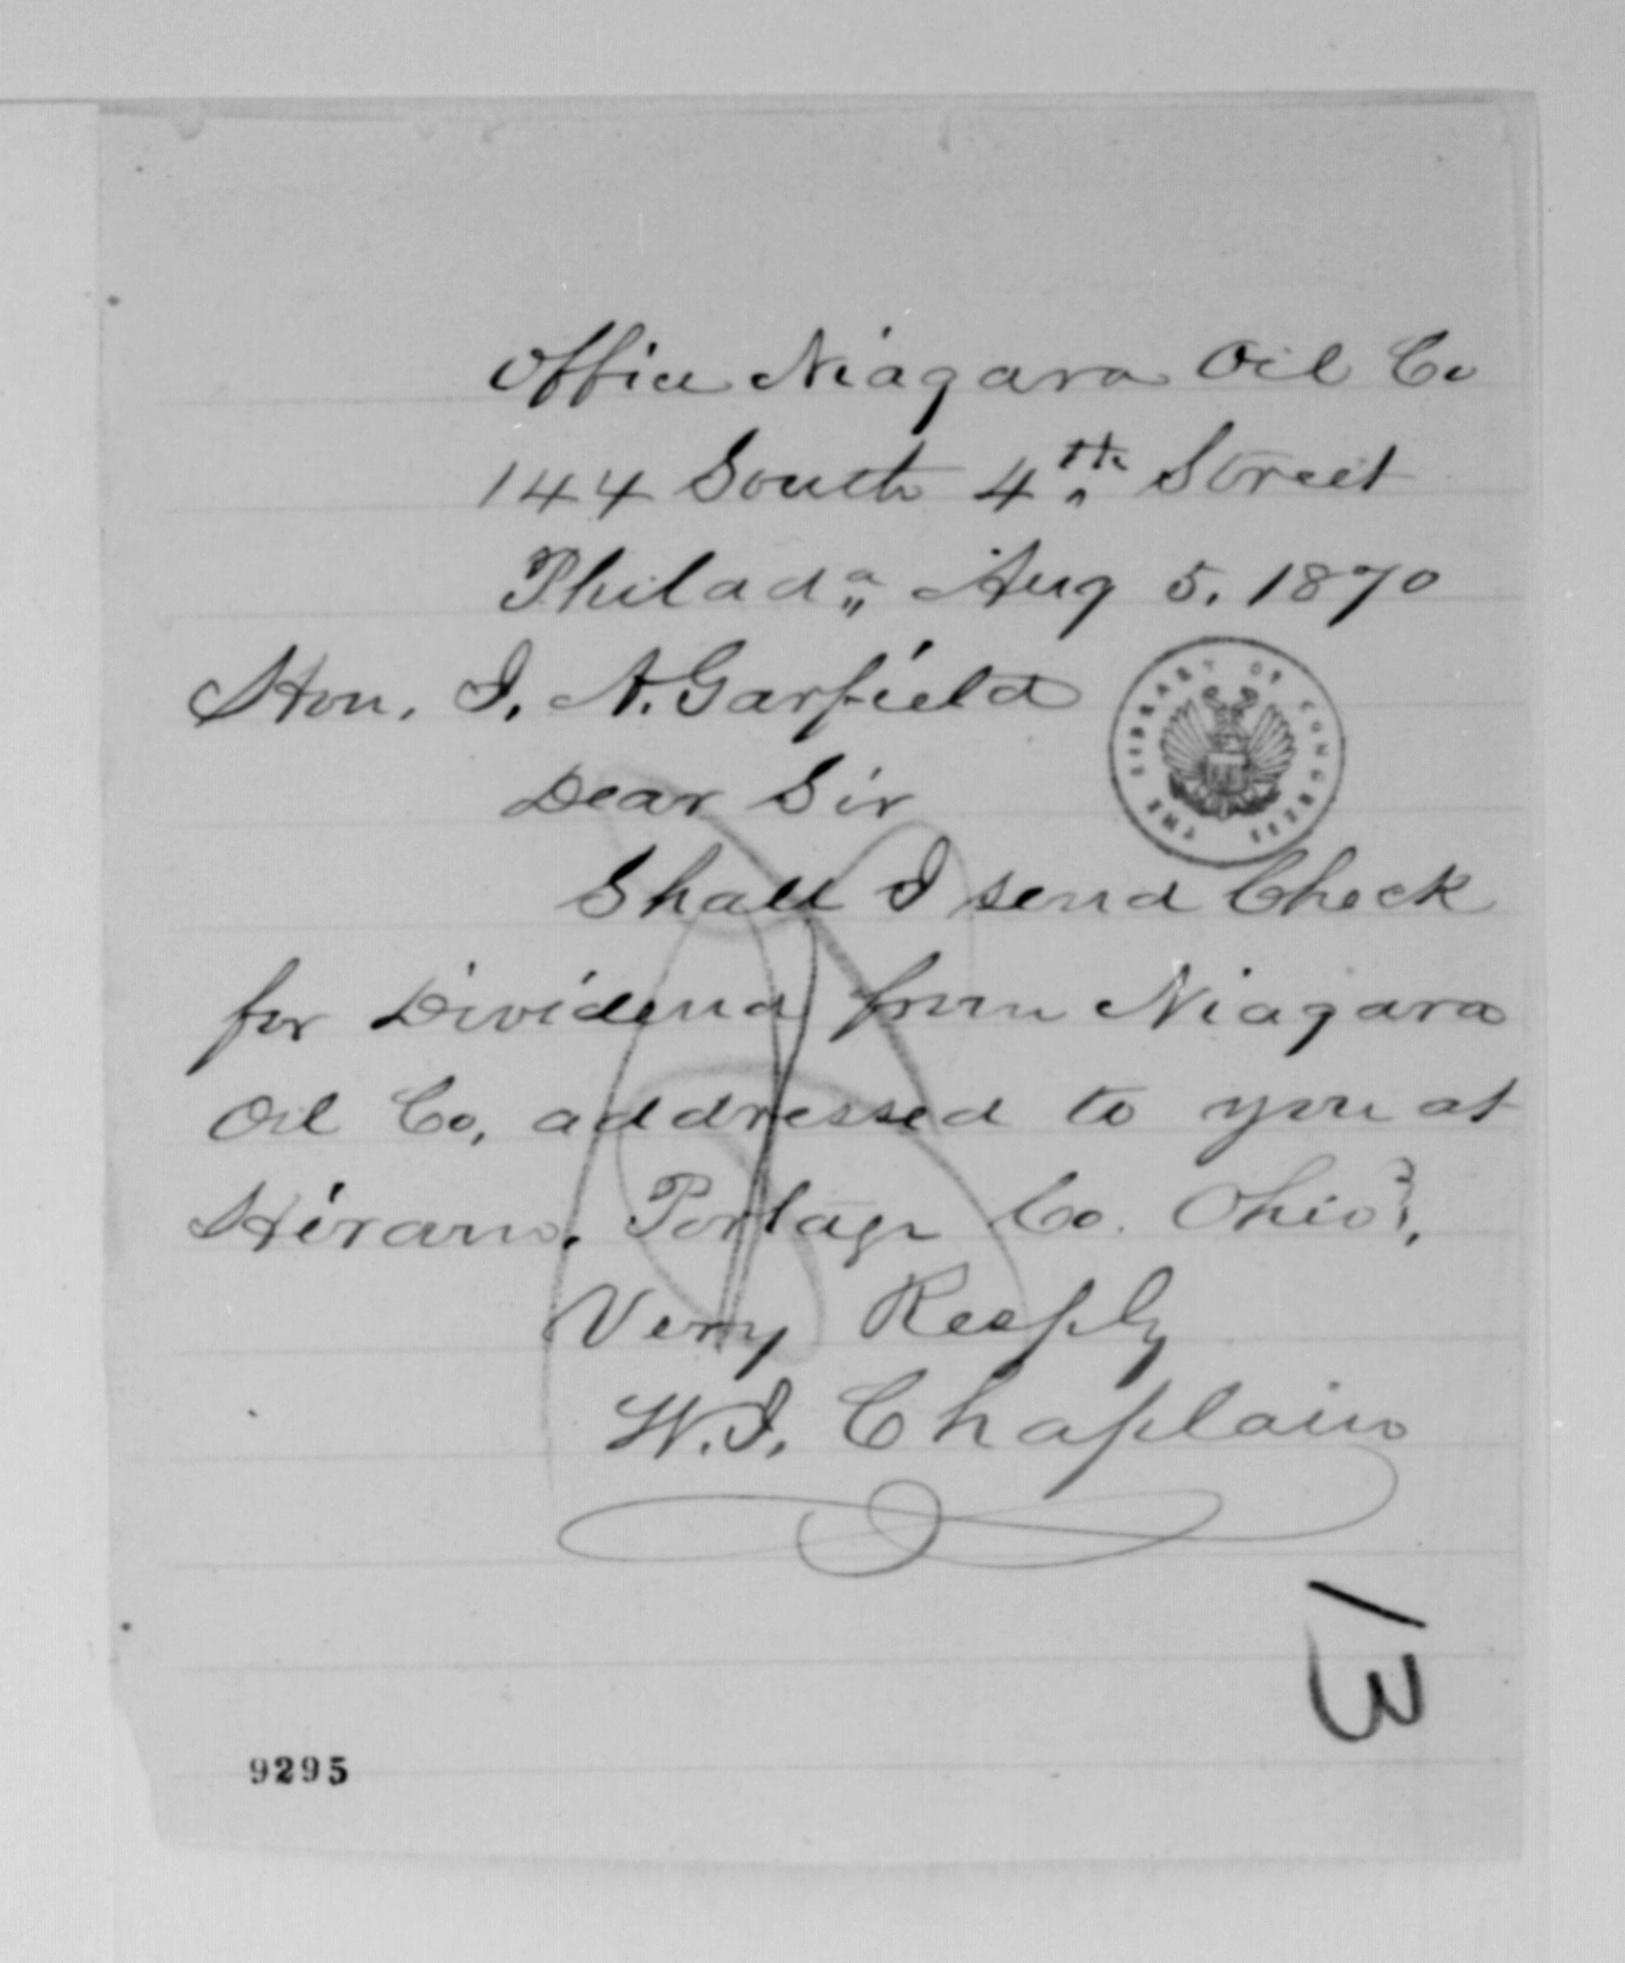 Office Niagara Oil Co
144 South 4th Street
Philada Aug 5, 1870
Hon. J. A. Garfield
THE LIBRARY OF CONGRESS
Dear Sir
Shall I send Check
for Dividend from Niagara
Oil Co, addressed to you at
Hiram, Portage Co. Ohio?,
Very Respfly
W. J. Chaplain
13
9295